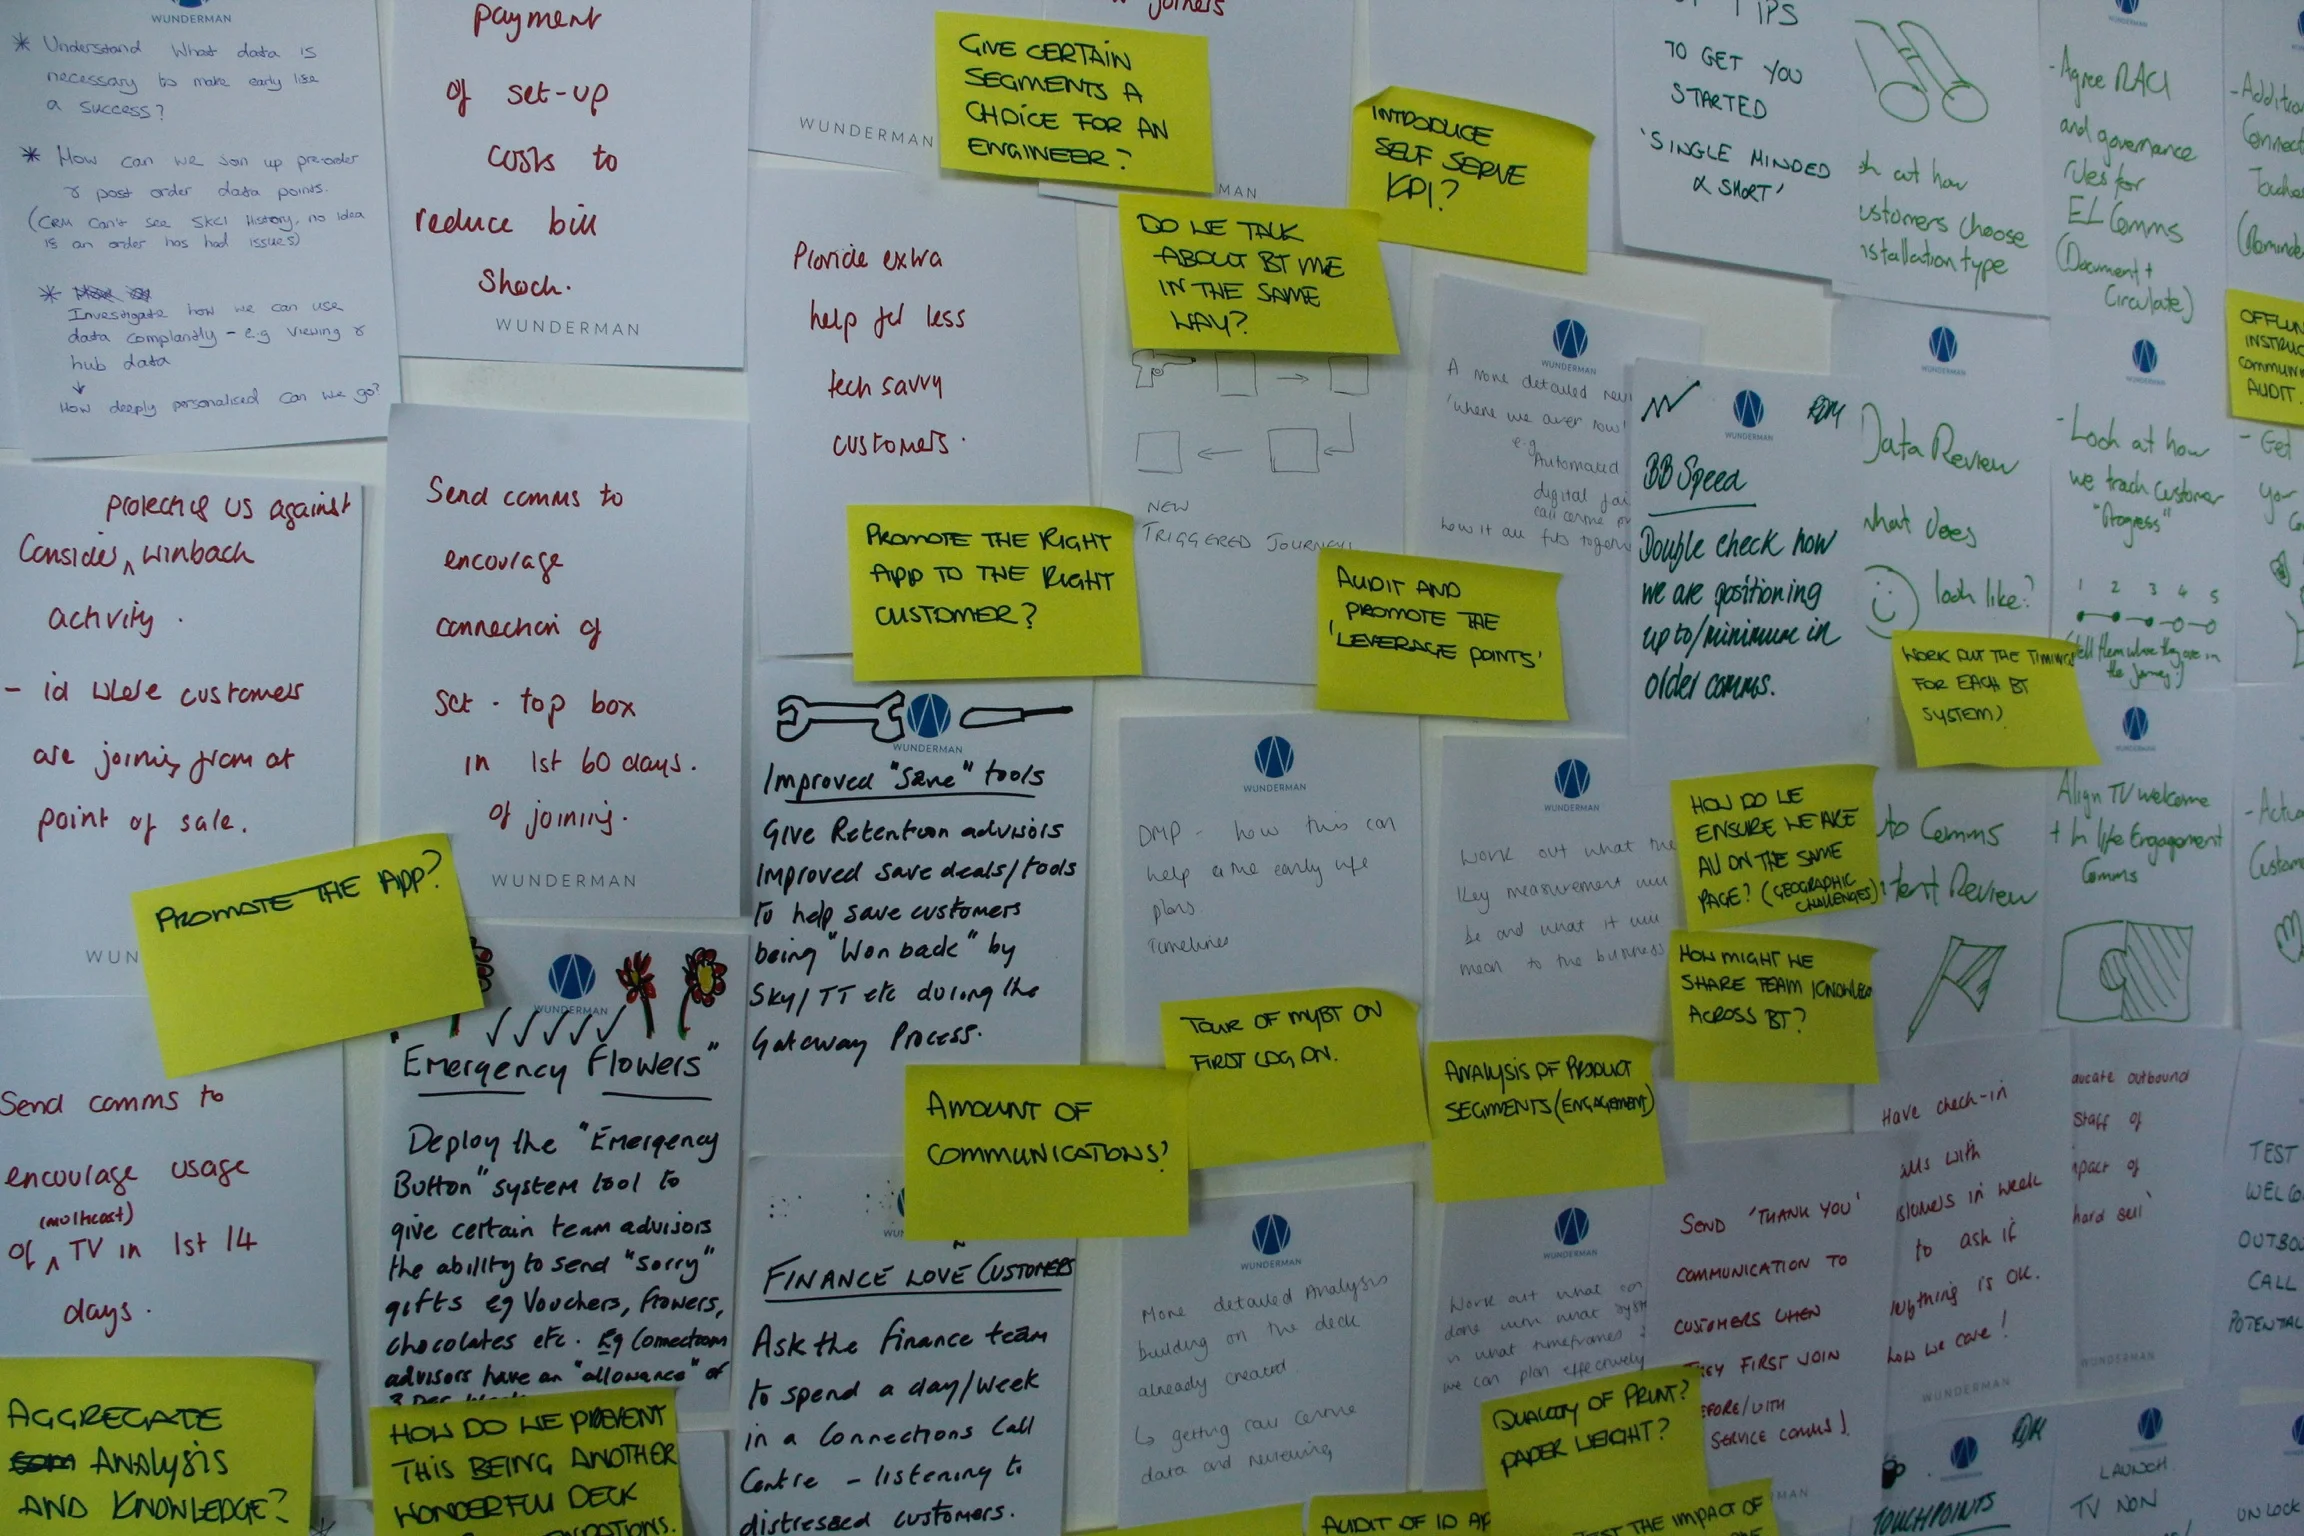 WUNDERMAN
* Understand What data is
necessary to make early life
a success?
* How can we join up pre-order
& post order data points.
(CRM can't see SKCI History, no idea
is an order has had issues)
*
Investigate how we can use
data complantly - e.g viewing &
hub data
↓
How deeply personalised can we go?
payment
of set-up
costs to
reduce bill
Shock.
WUNDERMAN
WUNDERMAN
joiners
GIVE CERTAIN
SEGMENTS A
CHOICE FOR AN
ENGINEER?
MAN
INTRODUCE
SELF SERVE
KPI?
DO WE TALK
ABOUT BT ME
IN THE SAME
WAY?
TIPS
TO GET YOU
STARTED
'SINGLE MINDED
& SHORT'
at how
choose
type
- Agree RACI
and governance
rules for
EL Comms
(Document +
Circulate)
Provide extra
help for less
tech savvy
customers.
NEW
TRIGGERED JOURNEY
WUNDERMAN
A more detailed
'where we are now'
e.g
Automated
digital
how it all fits together
WUNDERMAN
BB Speed
Double check how
we are positioning
up to/minimum in
older comms.
WUNDERMAN
Data Review
what does
look like?
WUNDERMAN
- Look at how
we track customer
"Progress"
1 2 3 4 5
(tell them where they are in
the journey)
AUDIT.
- Get
protecting us against
Consider ^ winback
activity.
- id where customers
are joining from at
point of sale.
Send comms to
encourage
connection of
set-top box
in 1st 60 days.
of joining.
WUNDERMAN
PROMOTE THE RIGHT
APP TO THE RIGHT
CUSTOMER?
AUDIT AND
PROMOTE THE
'LEVERAGE POINTS'
WORK OUT THE TIMINGS
FOR EACH BT
SYSTEM)
WUNDERMAN
Improved "Save" tools
Give Retention advisors
improved save deals/tools
to help save customers
being "Won back" by
Sky/TT etc during the
Gateway Process.
WUNDERMAN
DMP - how this can
help the early life
plans.
Timelines
WUNDERMAN
Work out what the
Key measurement will
be and what it will
mean to the business
HOW DO WE
ENSURE WE ARE
ALL ON THE SAME
PAGE? (GEOGRAPHIC
CHALLENGES)
Comms
Review
WUNDERMAN
Align TV welcome
+ In life Engagement
Comms
PROMOTE THE APP?
HOW MIGHT WE
SHARE TEAM
ACROSS BT?
WUNDERMAN
"Emergency Flowers"
Deploy the "Emergency
Button" system tool to
give certain team advisors
the ability to send "sorry"
gifts eg Vouchers, flowers,
chocolates etc. Eg Connections
advisors have an "allowance" of
Send comms to
encourage usage
(multicast)
of ^ TV in 1st 14
days.
TOUR OF MYBT ON
FIRST LOG ON.
AMOUNT OF
COMMUNICATIONS?
ANALYSIS OF PRODUCT
SEGMENTS (ENGAGEMENT)
FINANCE LOVE CUSTOMERS
Ask the finance team
to spend a day/week
in a Connections Call
Centre - listening to
distressed customers.
WUNDERMAN
More detailed Analysis
building on the deck
already created
↳ getting call centre
data and reviewing
WUNDERMAN
Work out what can
we can plan effectively
SEND 'THANK YOU'
COMMUNICATION TO
CUSTOMERS WHEN
THEY FIRST JOIN
SERVICE COMMS).
Have check-in
with
in week
to ask if
is OK.
we care!
WUNDERMAN
outbound
Staff of
of
hard sell
WUNDERMAN
TEST
CALL
AGGREGATE
ANALYSIS
AND KNOWLEDGE?
HOW DO WE PREVENT
THIS BEING ANOTHER
WONDERFUL DECK
QUALITY OF PRINT?
PAPER WEIGHT?
AUDIT OF ID
THE IMPACT OF
TOUCHPOINTS
WUNDERMAN
LAUNCH
TV NON
UNLOCK